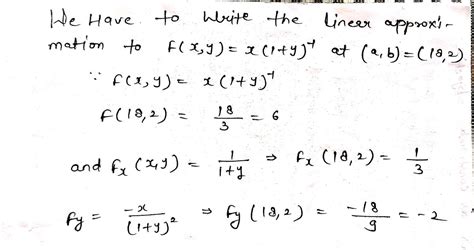 We Have to Write the linear approxi-
mation to f(x,y) = x(1+y)⁻¹ at (a,b)=(18,2)
∵ f(x,y) = x(1+y)⁻¹
f(18,2) = 18/3 = 6
and fx (x,y) = 1/(1+y) ⇒ fx (18,2) = 1/3
fy = -x/(1+y)² ⇒ fy (18,2) = -18/9 = -2